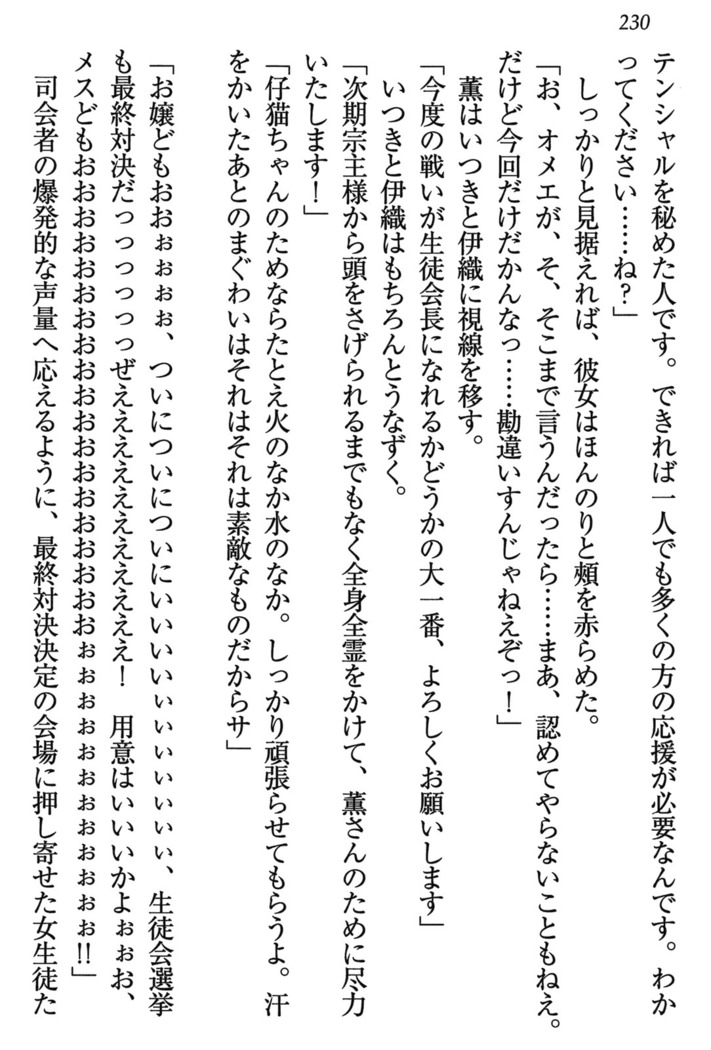 230
テンシャルを秘めた人です。できれば一人でも多くの方の応援が必要なんです。わか
ってください……ね？」
しっかりと見据えれば、彼女はほんのりと頰を赤らめた。
「お、オメエが、そ、そこまで言うんだったら……まあ、認めてやらないこともねえ。
だけど今回だけだかんなっ……勘違いすんじゃねえぞっ！」
薫はいつきと伊織に視線を移す。
「今度の戦いが生徒会長になれるかどうかの大一番、よろしくお願いします」
いつきと伊織はもちろんとうなずく。
「次期宗主様から頭をさげられるまでもなく全身全霊をかけて、薫さんのために尽力
いたします！」
「仔猫ちゃんのためならたとえ火のなか水のなか。しっかり頑張らせてもらうよ。汗
をかいたあとのまぐわいはそれはそれは素敵なものだからサ」
「お嬢どもおおぉぉぉぉ、ついについについにいいいいぃぃぃぃぃぃぃ、生徒会選挙
も最終対決だっっっっっっぜええええええええええええ！　用意はいいいかよぉぉお、
メスどもおおおおおおおおおおおおおおおおおおおおぉぉぉぉぉぉぉぉぉぉぉぉ!!」
司会者の爆発的な声量へ応えるように、最終対決決定の会場に押し寄せた女生徒た